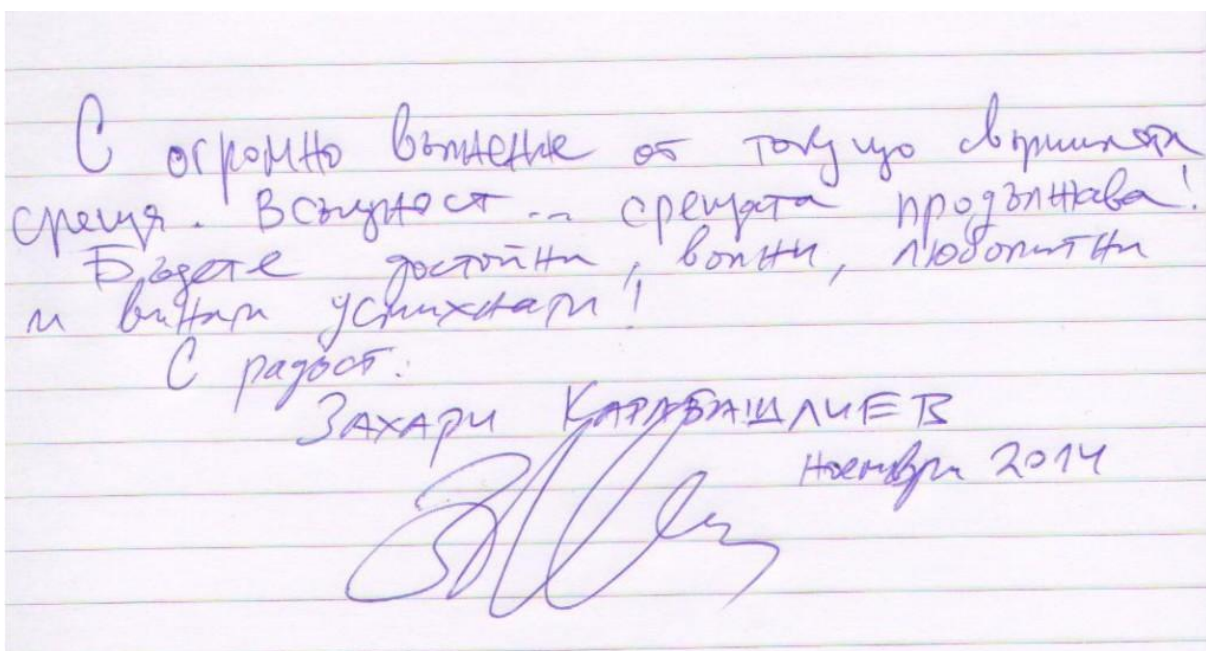 С огромно вълнение от току що свършилата
среща. Всъщност... срещата продължава!
Бъдете достойни, волни, любопитни
и винаги усмихнати!
С радост:
Захари КАРАБАШЛИЕВ
Ноември 2014